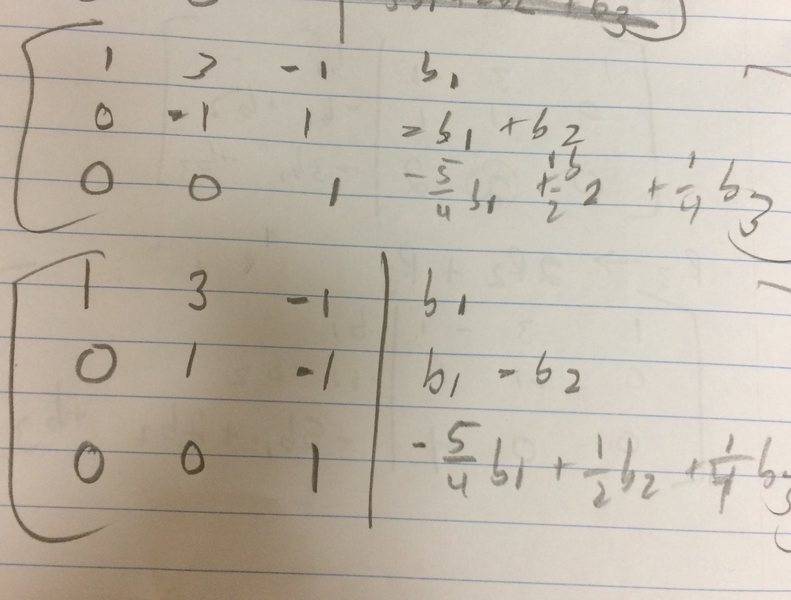 1 3 -1 b₁
0 -1 1 -b₁ + b₂
0 0 1 -5/4 b₁ + 1/2 b₂ + 1/4 b₃
1 3 -1 | b₁
0 1 -1 | b₁ - b₂
0 0 1 | -5/4 b₁ + 1/2 b₂ + 1/4 b₃